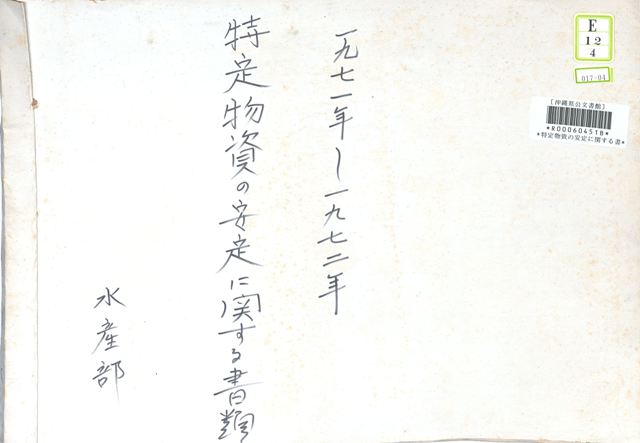 一九七一年～一九七二年
特定物資の安定に関する書類
水産部
E
12
4
017-04
[沖縄県公文書館]
*R00060451B*
*特定物資の安定に関する書*